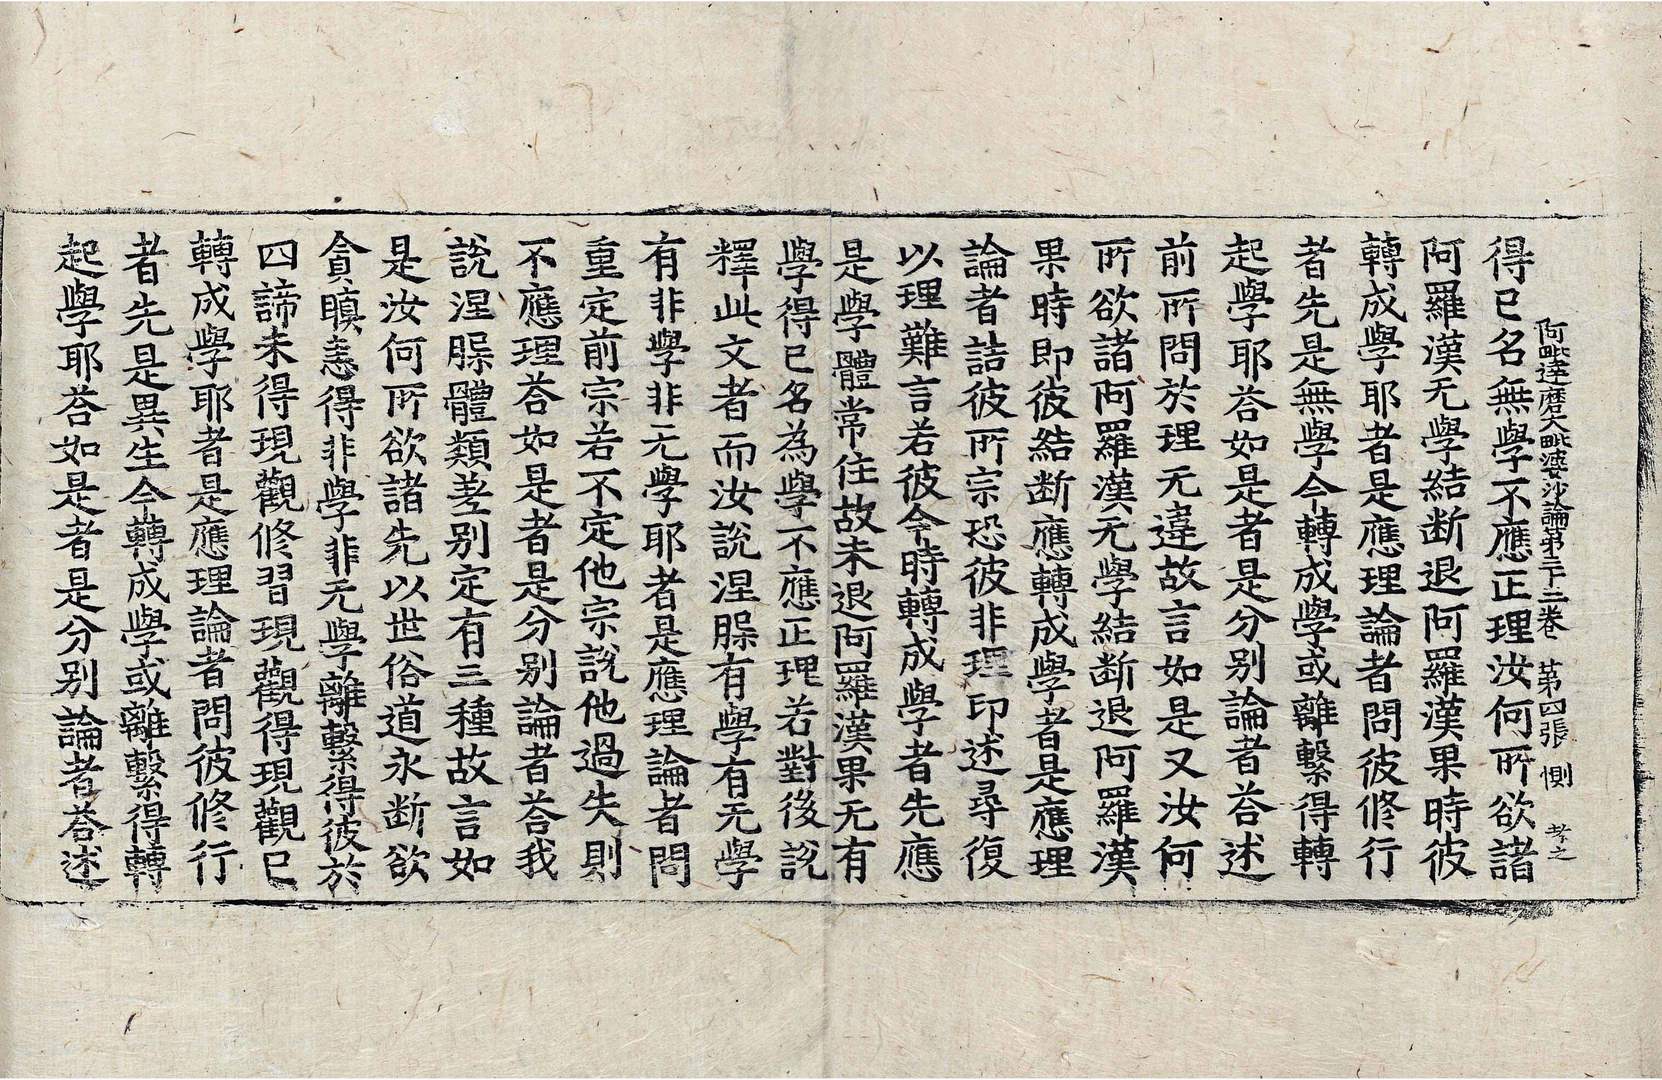 阿毗達磨大毗婆沙論第三十三卷 第四張 惻 孝之
得已名無學不應正理汝何所欲諸
阿羅漢无學結断退阿羅漢果時彼
轉成學耶者是應理論者問彼修行
者先是無學今轉成學或離繫得轉
起學耶荅如是者是分别論者荅述
前所問於理无違故言如是又汝何
所欲諸阿羅漢无學結断退阿羅漢
果時即彼結断應轉成學者是應理
論者詰彼所宗恐彼非理印述尋復
以理難言若彼今時轉成學者先應
是學體常住故未退阿羅漢果无有
學得已名為學不應正理若對後說
釋此文者而汝說涅槃有學有无學
有非學非无學耶者是應理論者問
重定前宗若不定他宗說他過失則
不應理荅如是者是分别論者荅我
說涅槃體類差别定有三種故言如
是汝何所欲諸先以世俗道永断欲
貪瞋恚得非學非无學離繫得彼於
四諦未得現觀修習現觀得現觀已
轉成學耶者是應理論者問彼修行
者先是異生今轉成學或離繫得轉
起學耶荅如是者是分别論者荅述